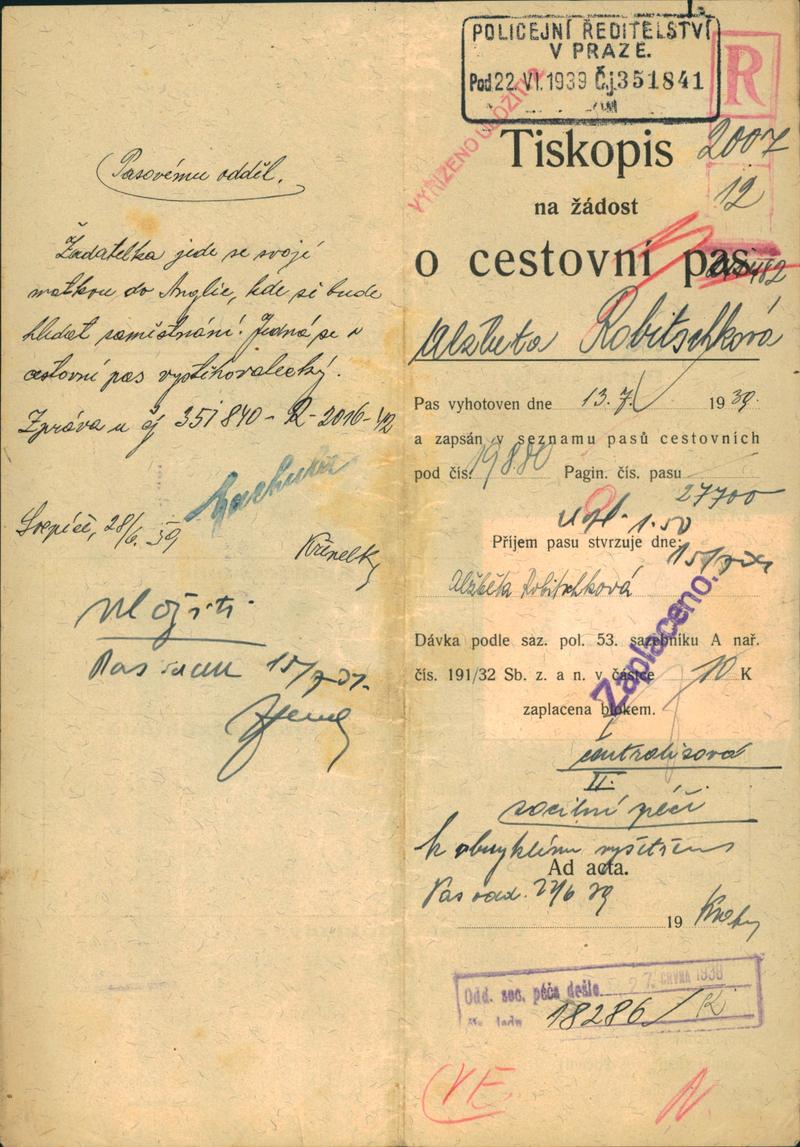 Pasovému odděl.
Žadatelka jede se svojí
matkou do Anglie, kde si bude
hledat zaměstnání. Jedná se o
cestovní pas vystěhovalecký.
Zpráva u čj 351840-R-2016-12
28/6. 39
Křinelký
Pas vydán 15/7 39.
POLICEJNÍ ŘEDITELSTVÍ
V PRAZE.
Pod 22. VI. 1939 Čj 351841
R
VYŘÍZENO ULOŽITI
Tiskopis
2007
12
na žádost
o cestovní pas
Alžběta Robitschková
Pas vyhotoven dne 13. 7. 1939.
a zapsán v seznamu pasů cestovních
pod čís. 19880 Pagin. čís. pasu
27700
1.50
Příjem pasu stvrzuje dne:
Alžběta Robitschková
Dávka podle saz. pol. 53. sazebníku A nař.
čís. 191/32 Sb. z. a n. v částce 10 K
zaplacena blokem.
Zaplaceno.
I.
centralisová
II.
sociální péči
k obvyklému vyšetření
Ad acta.
19
Odd. soc. péče došlo 27. ČRVNA 1939
18286/K